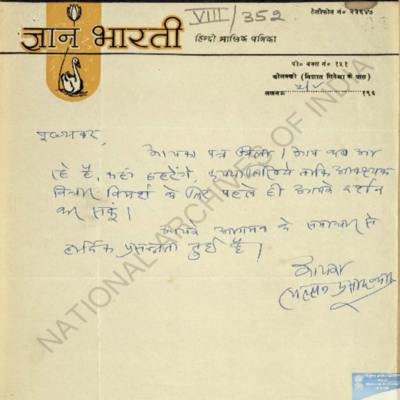 VIII/352
टेलीफोन नं० २२९४७
ज्ञान भारती
हिन्दी मासिक पत्रिका
पो० बक्स नं० १५१
चौलक्खी (विद्यान्त सिनेमा के पास)
लखनऊ १९६
पूज्यवर,
आपका पत्र मिला। आप कब आ
रहे हैं, कहां ठहरेंगे, कृपया लिखिये ताकि आवश्यक
विचार विमर्श के लिए पहले ही आपके दर्शन
कर सकूं।
आपके आगमन के समाचार से
हार्दिक प्रसन्नता हुई है।
आपका
NATIONAL ARCHIVES OF INDIA